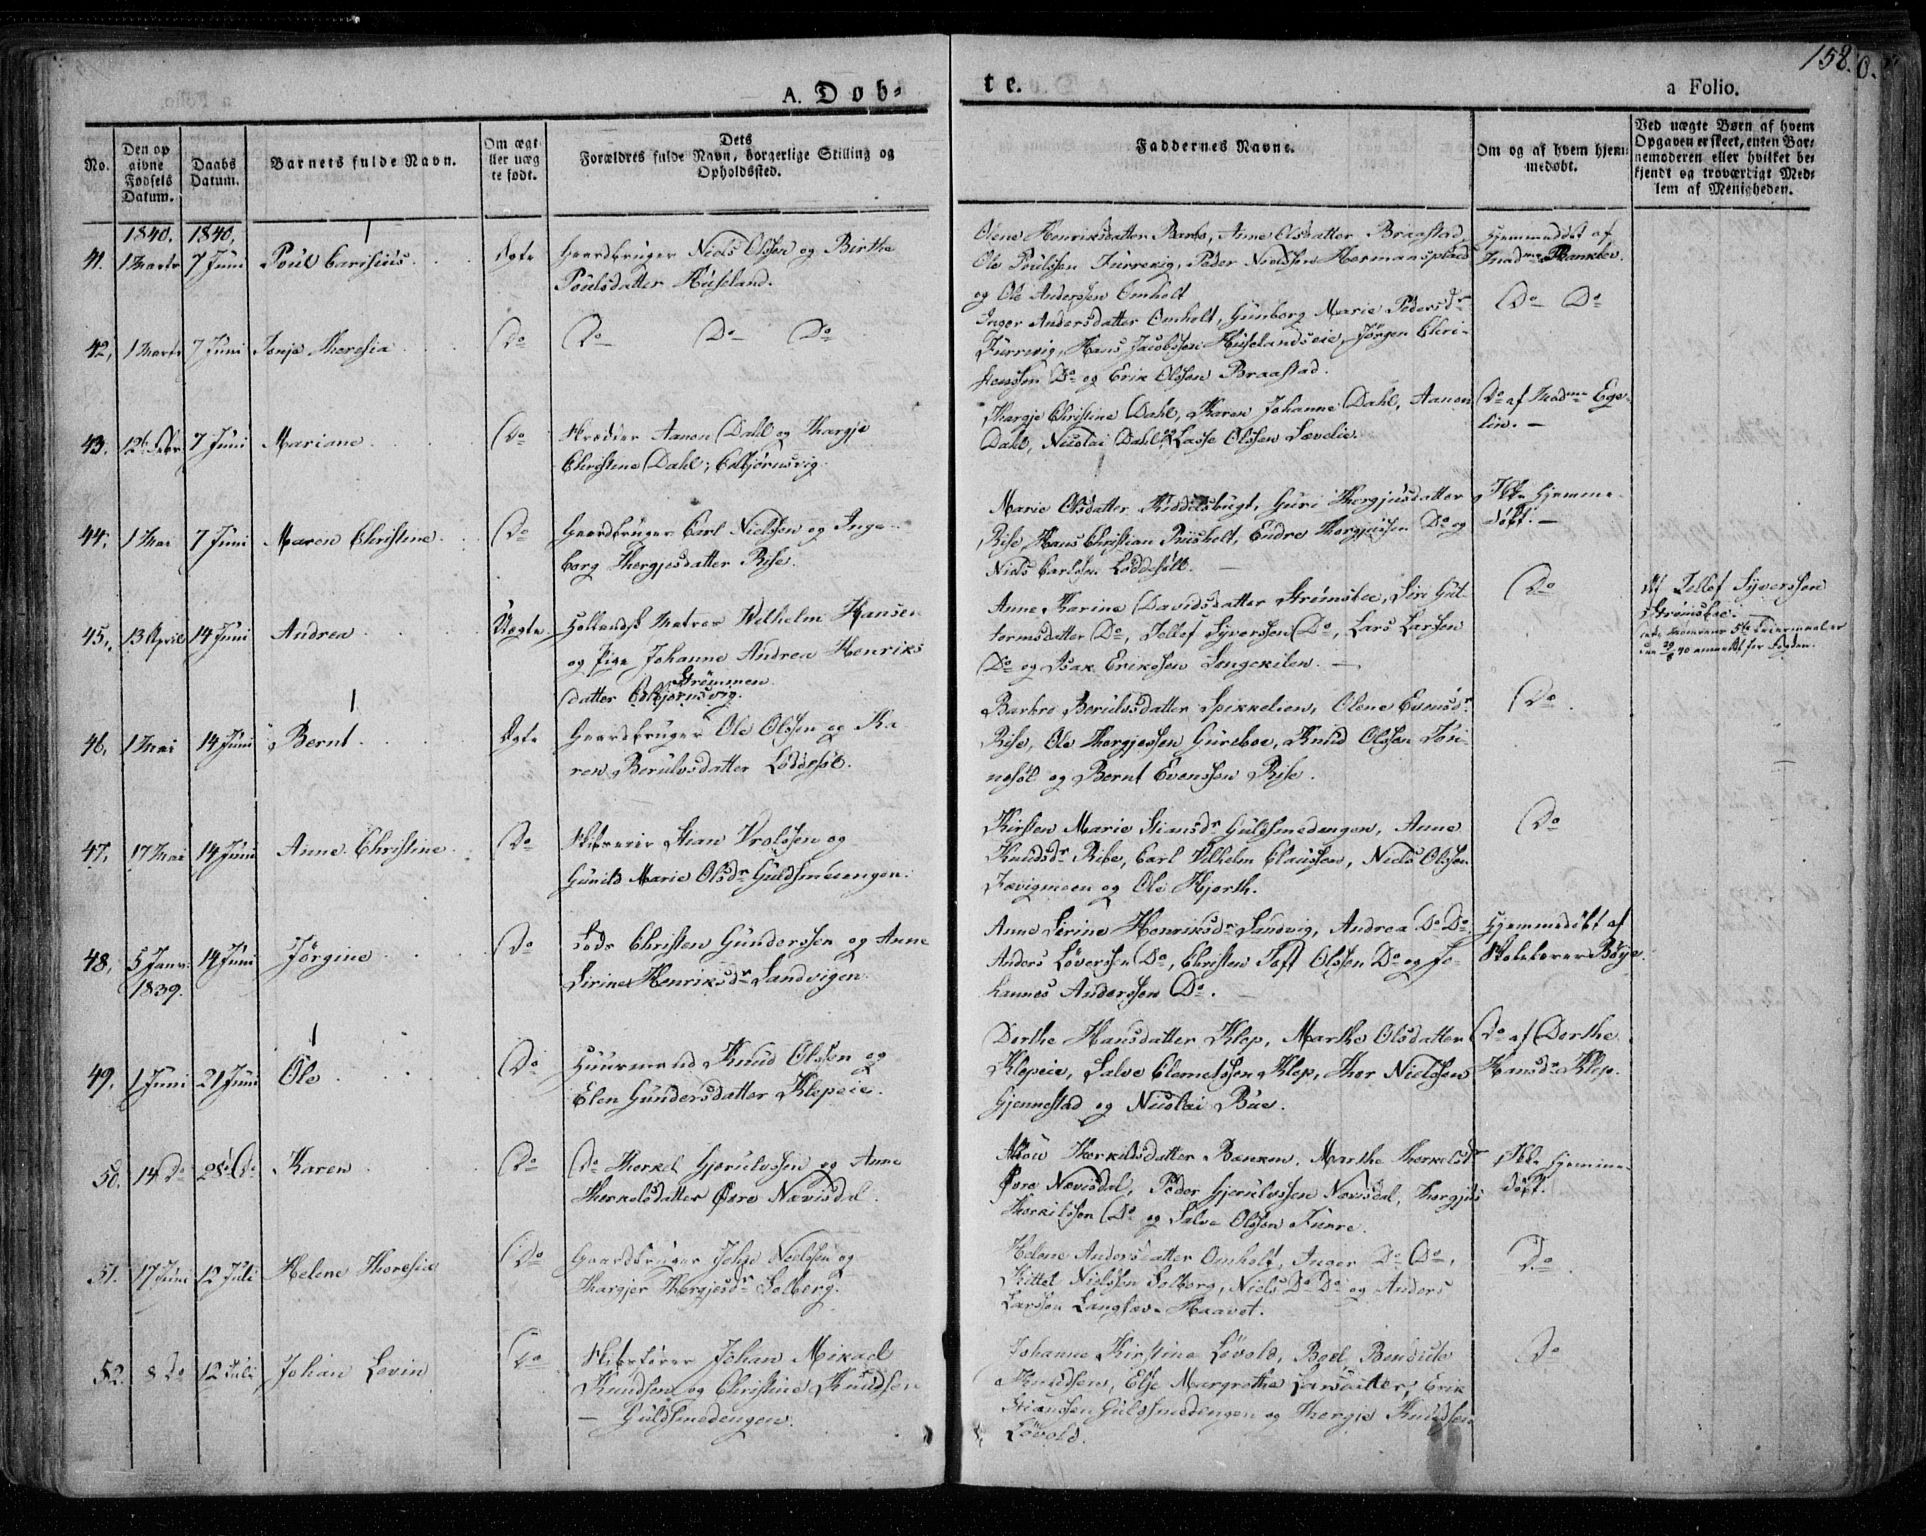 158.
A. Døb-
te.
a Folio.
No.
Den op
givne
Fødsels
Datum.
Daabs
Datum.
Barnets fulde Navn.
Om ægt
eller uæg
te født.
Dets
Forældres fulde Navn, borgerlige Stilling og
Opholdssted.
Faddernes Navne.
Om og af hvem hjem
medøbt.
Ved uægte Børn af hvem
Opgaven er skeet, enten Bar-
nemoderen eller hvilket be-
kjendt og troværdigt Med-
lem af Menigheden.
1840. 1840.
41. 1 Marts 7 Juni Poul Carisius Ægte
Gaardbruger Niels Olssen og Birthe
Poulsdatter Huseland.
Olene Henriksdatter Barbo, Anne Olsdatter Braastad
Ole Poulssen Furrevig, Peder Nielssen Hermansplads
og Ole Anderssen Omholt
Hjemmedøbt af
Mad
42. 1 Marts 7 Juni Tonje Theresia Do
Do Do Do
Inger Andersdatter Omholt, Gunborg Marie Pedersdr
Furrevig, Hans Jacobssen Huselandseie, Jørgen Chri-
stenssen Do og Erik Olssen Braastad.
Do Do
43. 12te Febr 7 Juni Mariane Do
Aanon Dahl og Thargje
Christine Dahl, Colbjørnsvig.
Thargje Christine Dahl, Karen Johanne Dahl, Aanon
Dahl, Nicolai Dahl og Lasse Olssen Sævelie.
Do af Madme Ege-
lin.
44. 1 Mai 7 Juni Maren Christine Do
Gaardbruger Carl Nielssen og Inge-
borg Thorgjusdatter Rise.
Marie Olsdatter Kiddelsbugt, Guri Thorgjusdatter
Rise, Hans Christian Riisholt, Endre Thorgjussen Do og
Niels Carlssen Løddesøl.
Ikke hjemme-
døbt.
45. 13 April 14 Juni Andrea Uægte
Hollandsk Matros Wilhelm Hansen
og Pige Johanne Andrea Henriks
Strømmen
datter Colbjørnsvig.
Anne Karine Davidsdatter Strømsboe, Siri Gut-
tormsdatter Do, Tellef Syverssen Do, Lars Larssen
Do og Isak Erikssen Longekilen.
Do
Af Tellef Syverssen
Strømsboe.
46. 1 Mai 14 Juni Bernt Ægte
Gaardbruger Ole Olssen og Ka
ren Berulvsdatter Løddesøl.
Barbro Berulvsdatter Spikkelien, Olene Evensdr
Rise, Ole Thorgjussen Gureboe, Knud Olssen
og Bernt Evenssen Rise.
Do
47. 17 Mai 14 Juni Anne Christine Do
Stian Vrolssen og
Gunild Marie Olsdr Guldsmedengen.
Kirsten Marie Stiansdr Guldsmedengen, Anne
Knudsdr Ribe, Carl Vilhelm Claussen, Niels Olssen
Fævigmoen og Ole Hjorth.
Do
48. 5 Janv. 14 Juni Jørgine Do
1839.
Lods Christen Gunderssen og Anne
Sirine Henriksdr Sandvigen.
Anne Sirine Henriksdr Sandvig, Andrea Do Do.
Anders Do, Christen Toft Olssen Do og Jo-
hannes Anderssen Do.
Hjemmedøbt af
Skolelærer Bøye.
49. 1 Juni 21 Juni Ole Do
Huusmand Knud Olssen og
Elen Gundersdatter Klepeie.
Dorthe Hansdatter Klep, Marthe Olsdatter
Klepeie, Salve Clemetssen Klep, Thor Nielssen
Gjennestad og Nicolai Bue.
Do af Dorthe
Hansdr Klep.
50. 14 Do 28 Do Karen Do
Do Therkel Gjerulvssen og Anne
Therkelsdatter Øvre Nævisdal.
Therkilsdatter Banken, Marthe Therkelsdr
Øvre Nævisdal, Peder Gjerulvssen Nævisdal, Thorgjus
Therkilssen Do og Salve Olssen Furre.
Ikke hjemme-
døbt.
51. 17 Juni 12 Juli Helene Theresie Do
Gaardbruger John Nielssen og
Thargjer Thorgjesdr Solberg.
Helene Andersdatter Omholt, Inger Do Do,
Kittel Nielssen Solberg, Niels Do Do og Anders
Larssen Langsæv Haavet.
Do
52. 8 Do 12 Juli Johan Levin Do
Skibsfører Johan Mikael
Knudsen og Christine Knudsen
Guldsmedengen.
Johanne Kirstine Løvold, Boel Bendicte
Knudsen, Else Margrethe Larsdatter, Erik
Stianssen Guldsmedengen og Thorgie Knudsen
Løvold.
Do